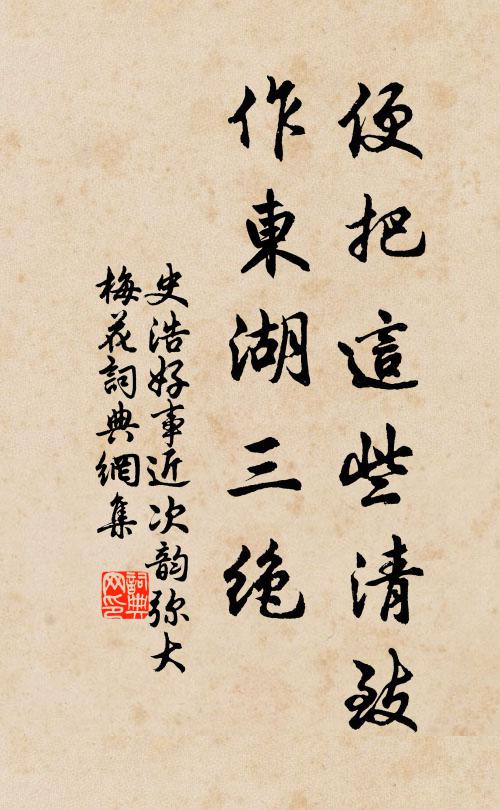 便把這些清致
作東湖三絶
史浩好事近次韵弥大
梅花詞典網集
詞典网印